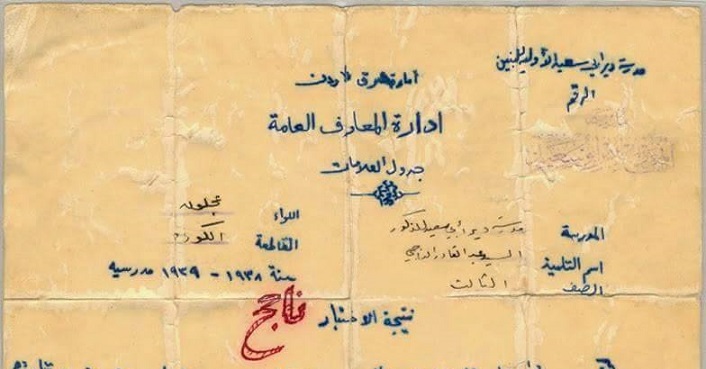 مدرسة دير ابي سعيد الأولية للبنين
الرقم
امارة شرق الاردن
ادارة المعارف العامة
جدول العلامات
المدرسة مدرسة دير ابي سعيد للذكور
اللواء عجلون
اسم التلميذ السيد عبد القادر
المقاطعة الكورة
الصف الثالث
سنة ١٩٣٨ - ١٩٣٩ مدرسيه
نتيجة الاختبار ناجح